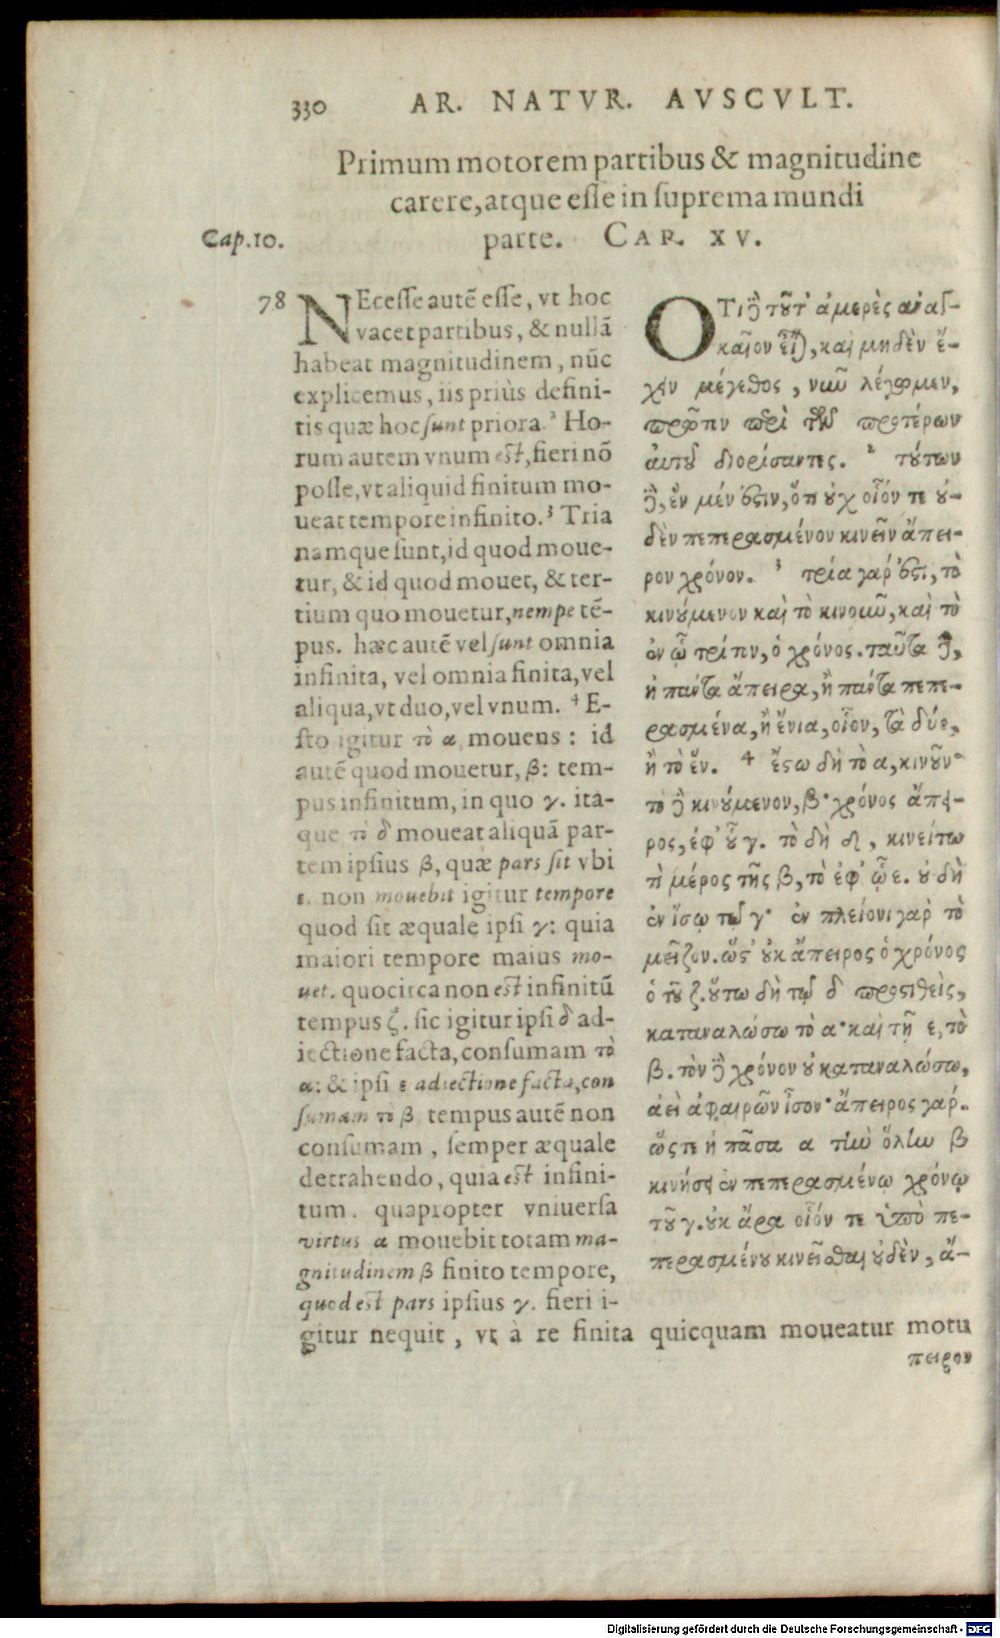 330 AR. NATVR. AVSCVLT.
Primum motorem partibus & magnitudine
carere, atque esse in suprema mundi
Cap. 10. parte. CAP. XV.
78 NEcesse autē esse, vt hoc
vacet partibus, & nullā
habeat magnitudinem, nūc
explicemus, iis priùs defini-
tis quæ hoc sunt priora. ² Ho-
rum autem vnum est, fieri nō
posse, vt aliquid finitum mo-
ueat tempore infinito. ³ Tria
namque sunt, id quod moue-
tur, & id quod mouet, & ter-
tium quo mouetur, nempe tē-
pus. hæc autē vel sunt omnia
infinita, vel omnia finita, vel
aliqua, vt duo, vel vnum. ⁴ E-
sto igitur τὸ α mouens: id
autē quod mouetur, β: tem-
pus infinitum, in quo γ. ita-
que τὸ δ moueat aliquā par-
tem ipsius β, quæ pars sit vbi
ε. non mouebit igitur tempore
quod sit æquale ipsi γ: quia
maiori tempore maius mo-
uet. quocirca non est infinitū
tempus ζ. sic igitur ipsi δ ad-
iectione facta, consumam τὸ
α: & ipsi ε adiectione facta, con
sumam τὸ β tempus autē non
consumam, semper æquale
detrahendo, quia est infini-
tum. quapropter vniuersa
virtus α mouebit totam ma-
gnitudinem β finito tempore,
quod est pars ipsius γ. fieri i-
gitur nequit, vt à re finita quicquam moueatur motu
ΟΤι ϳ τοῦτ' ἀμερὲς ἀναγ-
καῖον εἶναι, καὶ μηδὲν ἔ-
χειν μέγεθος, νῦν λέγωμεν,
πρῶτον περὶ τῶν προτέρων
αὐτοῦ διορίσαντες. ² τούτων
δὲ, ἓν μέν ἐστιν, ὅτι οὐχ οἷόν τε οὐ-
δὲν πεπερασμένον κινεῖν ἄπει-
ρον χρόνον. ³ τρία γάρ ἐστι, τὸ
κινούμενον καὶ τὸ κινοῦν, καὶ τὸ
ἐν ᾧ τρίτον, ὁ χρόνος. ταῦτα δὲ,
ἢ πάντα ἄπειρα, ἢ πάντα πεπε-
ρασμένα, ἢ ἔνια, οἷον, τὰ δύο,
ἢ τὸ ἕν. ⁴ ἔστω δὴ τὸ α, κινοῦν·
τὸ δὲ κινούμενον, β· χρόνος ἄπει-
ρος, ἐφ' οὗ γ. τὸ δὴ δ, κινείτω
τὶ μέρος τῆς β, τὸ ἐφ' ᾧ ε. οὐ δὴ
ἐν ἴσῳ τῷ γ· ἐν πλείονι γὰρ τὸ
μεῖζον. ὥστ' οὐκ ἄπειρος ὁ χρόνος
ὁ τοῦ ζ. οὕτω δὴ τῷ δ προστιθεὶς,
καταναλώσω τὸ α· καὶ τῇ ε, τὸ
β. τὸν δὲ χρόνον οὐ καταναλώσω,
ἀεὶ ἀφαιρῶν ἴσον· ἄπειρος γάρ.
ὥστε ἡ πᾶσα α τὴν ὅλην β
κινήσει ἐν πεπερασμένῳ χρόνῳ
τοῦ γ. οὐκ ἄρα οἷόν τε ὑπὸ πε-
περασμένου κινεῖσθαι οὐδὲν, ἄ-
πειρον
Digitalisierung gefördert durch die Deutsche Forschungsgemeinschaft - DFG